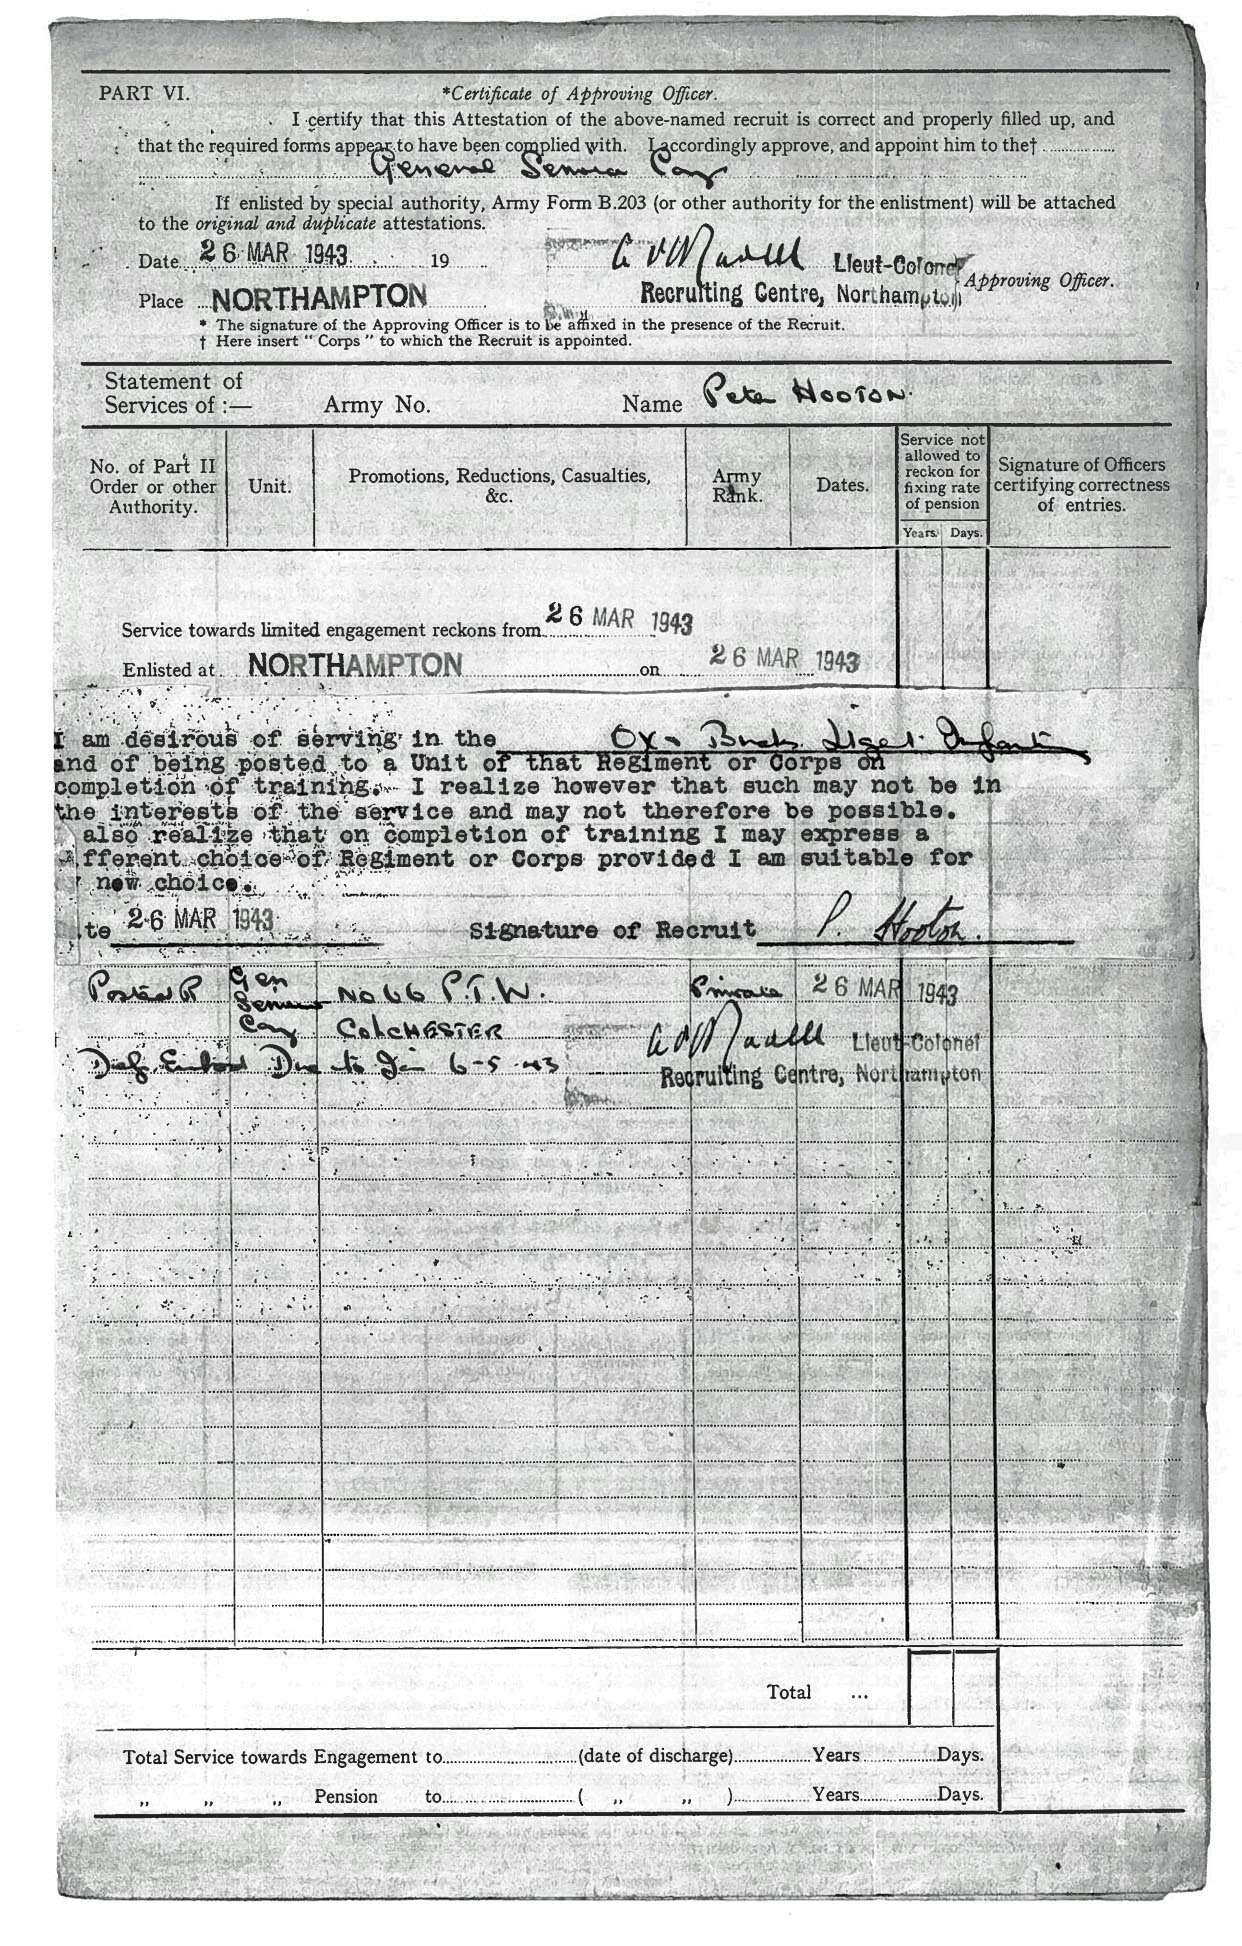 PART VI. *Certificate of Approving Officer.
I certify that this Attestation of the above-named recruit is correct and properly filled up, and
that the required forms appear to have been complied with. I accordingly approve, and appoint him to the†
General Service
If enlisted by special authority, Army Form B.203 (or other authority for the enlistment) will be attached
to the original and duplicate attestations.
Date 26 MAR 1943 19 Lieut-Colonel
Approving Officer.
Place NORTHAMPTON Recruiting Centre, Northampton
* The signature of the Approving Officer is to be affixed in the presence of the Recruit.
† Here insert "Corps" to which the Recruit is appointed.
Statement of
Services of :— Army No. Name Peter HOOTON.
No. of Part II Order or other Authority.
Unit.
Promotions, Reductions, Casualties, &c.
Army Rank.
Dates.
Service not allowed to reckon for fixing rate of pension
Years. Days.
Signature of Officers certifying correctness of entries.
Service towards limited engagement reckons from 26 MAR 1943
Enlisted at NORTHAMPTON on 26 MAR 1943
I am desirous of serving in the Ox & Bucks Light Infantry
and of being posted to a Unit of that Regiment or Corps on
completion of training. I realize however that such may not be in
the interests of the service and may not therefore be possible.
also realize that on completion of training I may express a
fferent choice of Regiment or Corps provided I am suitable for
new choice.
te 26 MAR 1943 Signature of Recruit P. Hooton.
Posted Gen No 66 P.T.W. Private 26 MAR 1943
Service
COLCHESTER Lieut-Colonel
Due to Join 6-5-43 Recruiting Centre, Northampton
Total ...
Total Service towards Engagement to (date of discharge) Years Days.
„ „ „ Pension to ( „ „ ) Years Days.